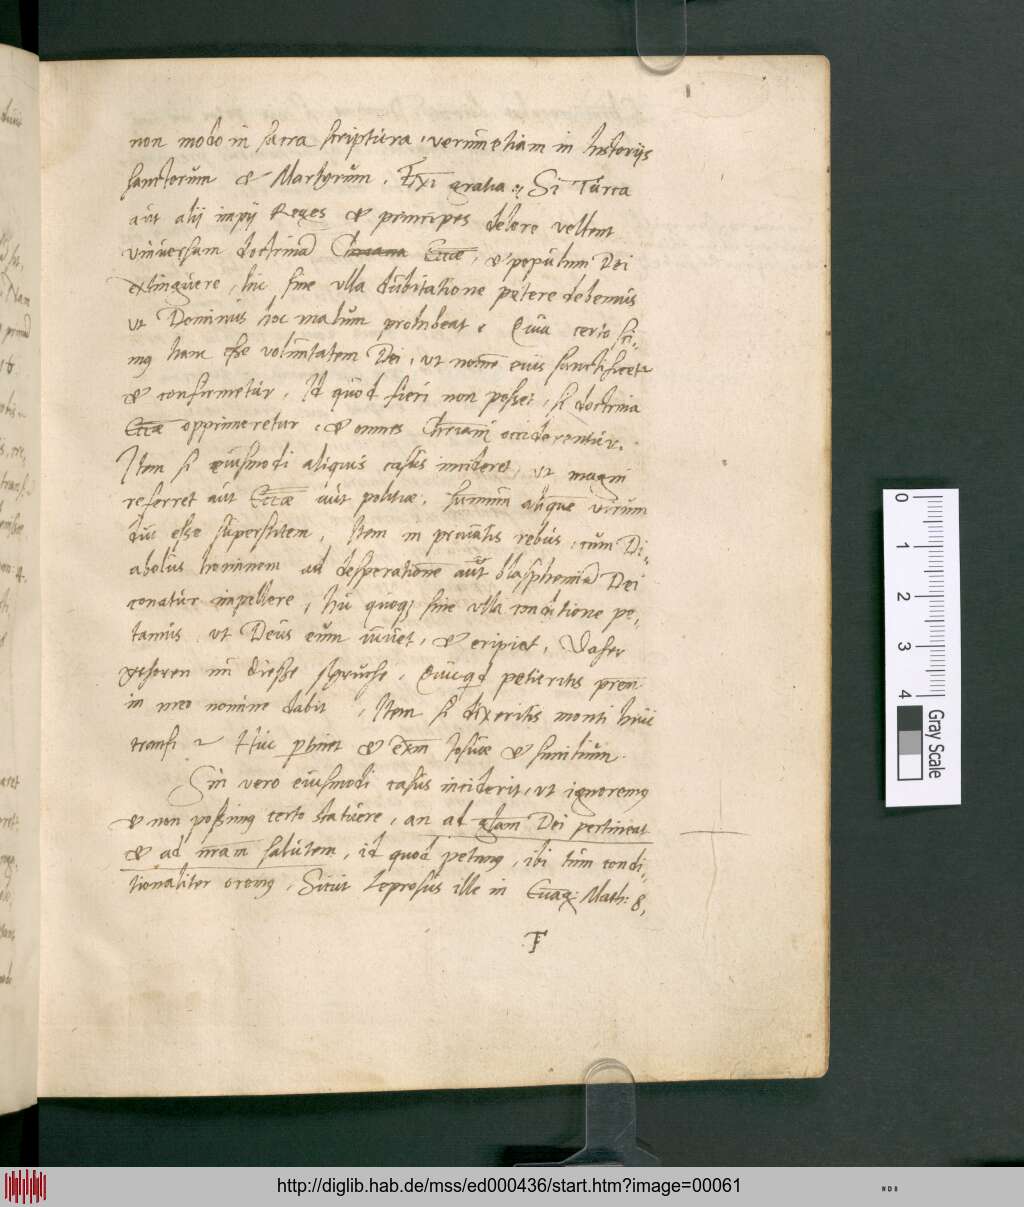 non modo in sacra scriptura, verumetiam in historijs
sanctorum et Martyrum. Exi gratia: Si Turca
aut alij impij Reges et principes delere vellent
universam doctrinā Eccae, et populum Dei
extinguere, hic sine ulla dubitatione petere debemus
ut Dominus hoc malum prohibeat. Quia certo sci-
mus hanc esse voluntatem Dei, ut nomē eius sanctificetr
et confirmetur. Id quod fieri non posset, si doctrina
Eccae opprimeretur, et omnes Chriani occiderentur.
Item si eiusmodi aliquis casus incideret, ut magni
referret aut Eccae aut politiae, summū aliquē virum
diu esse superstitem, Item in privatis rebus, cum Di-
abolus hominem ad desperationē aut blasphemiā Dei
conatur impellere, hic quoq; sine ulla conditione pe-
tamus, ut Deus eum iuvet, et eripiet. Daher
gehoren nū diesse spruche. Quicqd petieritis prem
in meo nomine dabit, Item si dixeritis monti huic
transi Huc ptinet et exm Josuae et similium.
Sin vero eiusmodi casus inciderit, ut ignoremus
et non possimus certo statuere, an ad glam Dei pertineat
et ad nram salutem, id quod petimus, ibi tum condi-
tionaliter oremus, Sicut Leprosus ille in Euag: Math: 8,
F
0
1
2
3
4
Gray Scale
http://diglib.hab.de/mss/ed000436/start.htm?image=00061